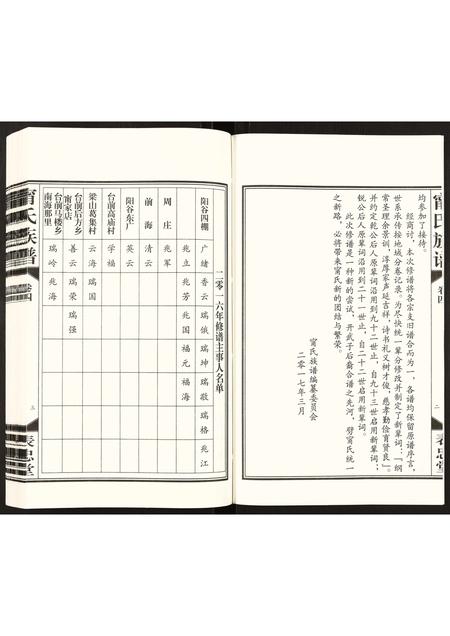 甯氏族谱
卷四
二
表忠堂
均参加了接待。
经商讨，本次修谱将各宗支旧谱合而为一，各谱均保留原谱序言，
世系承传按地域分卷记录。为尽快统一辈分修改并制定了新辈词：「纲
常圣理余景训，淳厚家声延吉祥，诗书礼义树才俊，慈孝勤俭育贤良」。
并约定乾公后人原辈词沿用到九十二世止，自九十三世启用新辈词；
锐公后人原辈词沿用到二十一世止，自二十二世启用新辈词。
此次修谱是一种新的尝试，开武子后裔合谱之先河，孵甯氏统一
之新路，必将带来甯氏新的团结与繁荣。
甯氏族谱编纂委员会
二〇一七年三月
二〇一六年修谱主事人名单
阳谷四棚 广绪 香云 瑞俄 瑞坤 瑞敬 瑞格 兆江
兆立 兆芳 兆国 福元 福海
周庄 兆军
前海 清云
阳谷东广 英云
台前高庙村 学福
梁山葛集村 云海 瑞国
台前后方乡甯家店 善云 瑞荣 瑞强
台前马楼乡南海那里 瑞岭 兆海
甯氏族谱
卷四
三
表忠堂